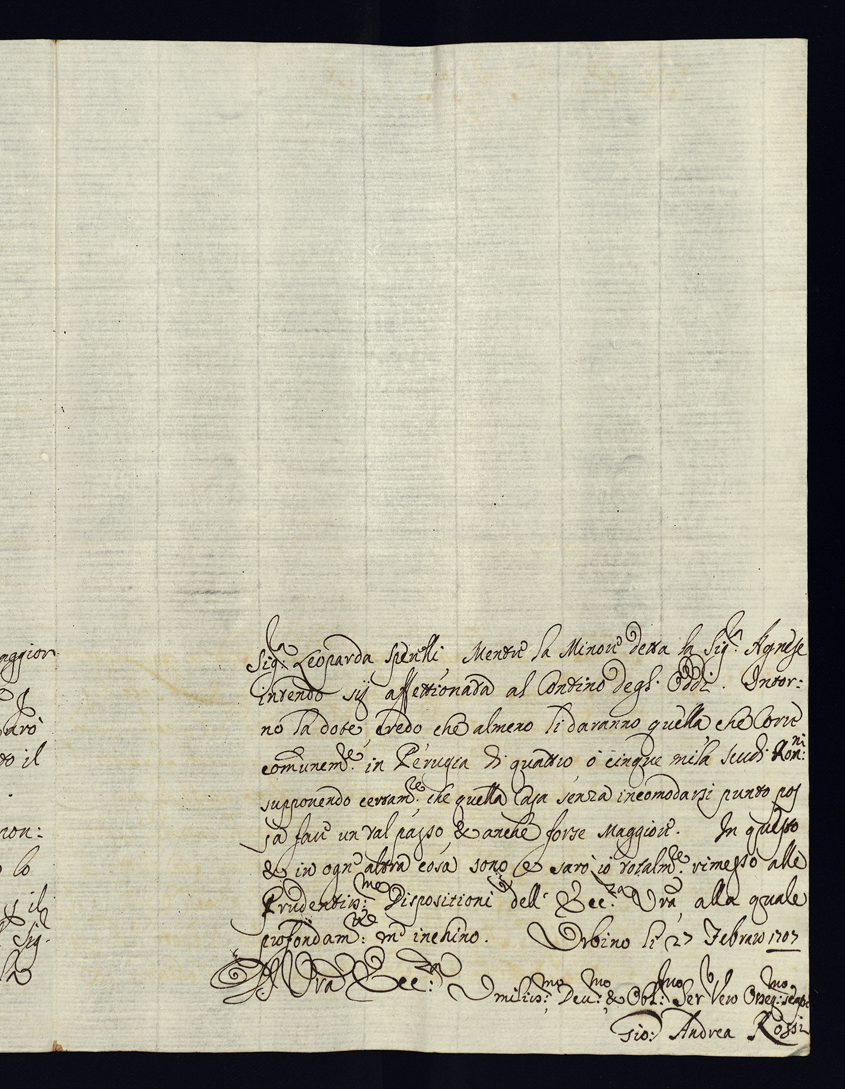 aggior
sarò
to il
non:
lo
il
Sig.
Sig.ra Leoparda Sperelli Mentre la Minore detta la Sig.ra Agnese
intendo sij affettionata al Contino degl' Oddi. Intor:
no la dote credo che almeno li daranno quella che corre
comunem.te in Perugia di quattro ò cinque mila scudi Rom:ni
supponendo certam.te che quella Casa senza incomodarsi punto pos
sa fare un tal passo & anche forse Maggiore. In questo
& in ogn' altra cosa sono e sarò io totalm.te rimesso alle
Prudentiss:me Dispositioni dell' Ecc:za Vra alla quale
profondam:te m' inchino. Urbino li 27 Febraro 1707
Vra Ecc:za
Umiliss:mo Dev:mo & Obl:mo Ser Vero Osseq:mo sempre
Gio: Andrea Rossi